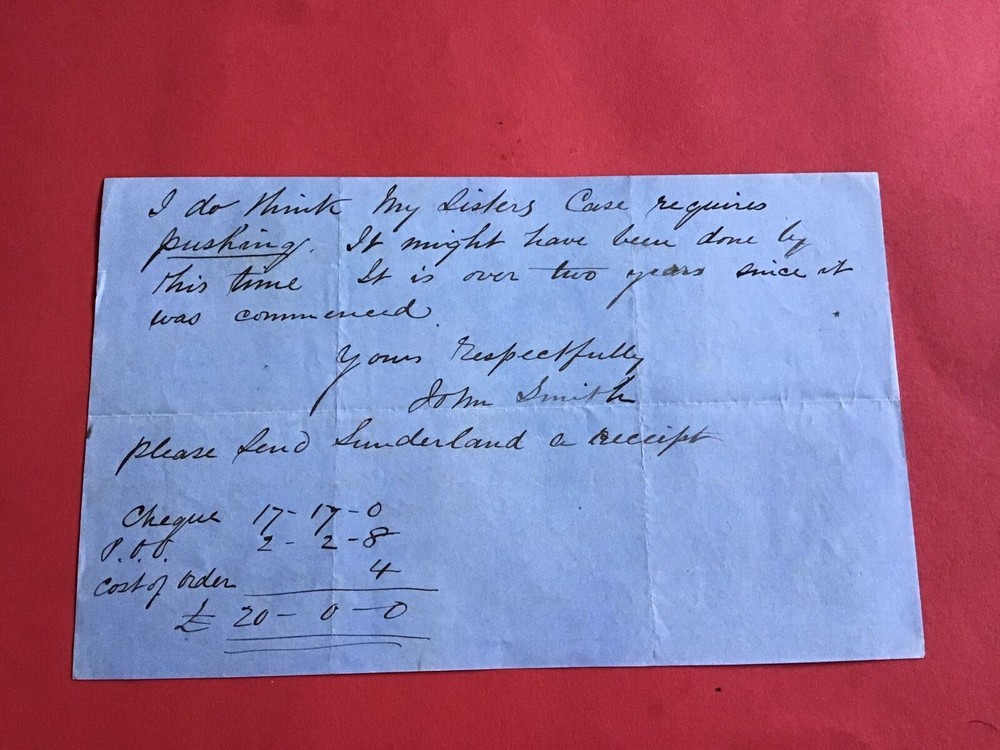 I do think My Sisters Case requires
pushing. It might have been done by
this time It is over two years since it
was commenced.
Yours Respectfully
John Smith
please Send Sunderland a receipt
Cheque 17-17-0
P.O.O. 2-2-8
Cost of order 4
£ 20-0-0